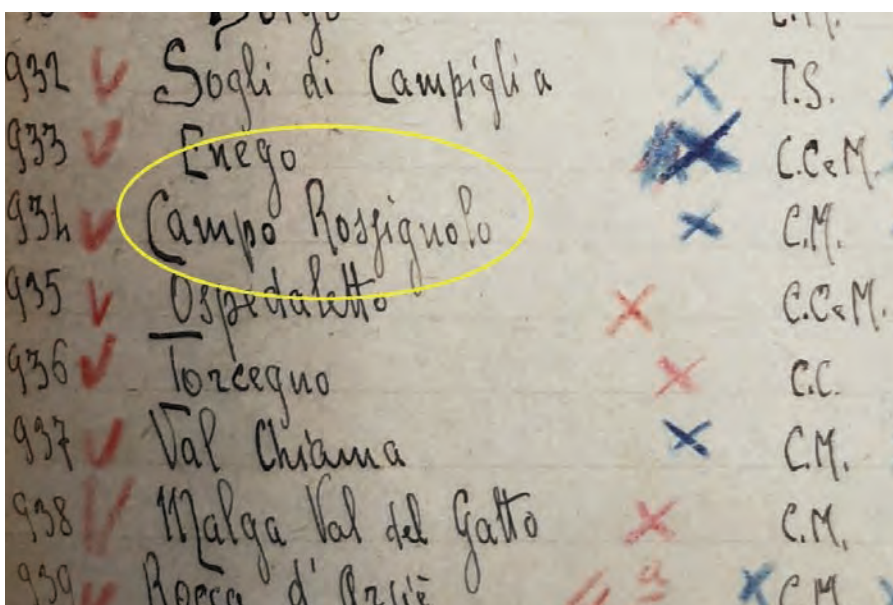 Borgo C.M.
932 Sogli di Campiglia T.S.
933 Enego C.C e M.
934 Campo Rossignolo C.M.
935 Ospedaletto C.C e M.
936 Torcegno C.C.
937 Val Chiama C.M.
938 Malga Val del Gatto C.M.
939 Rocca d'Arsiè C.M.